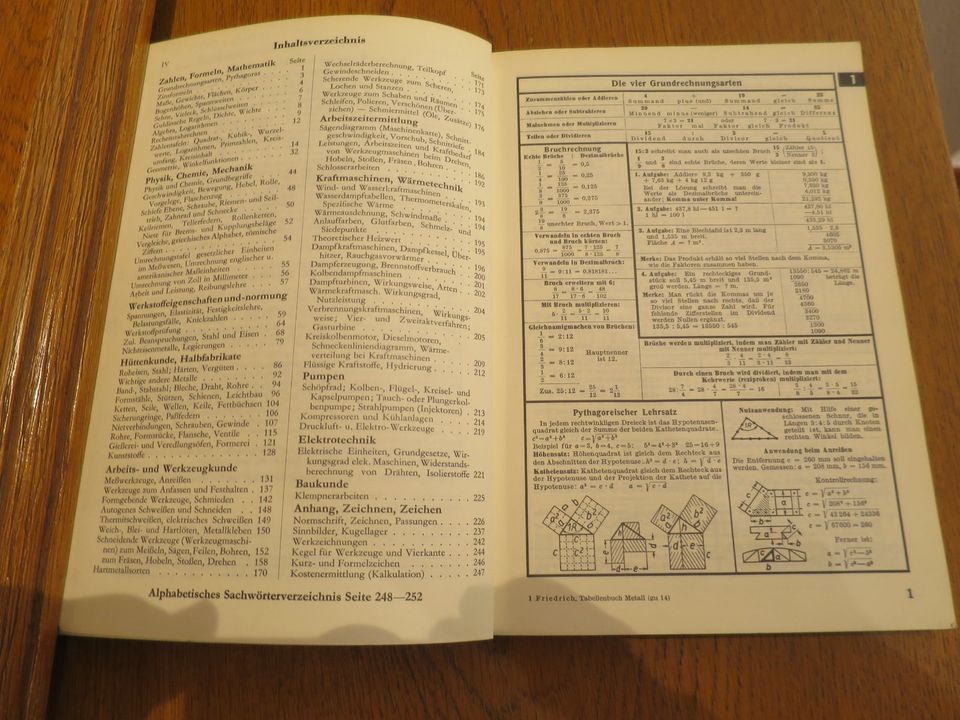 IV
Inhaltsverzeichnis
Zahlen, Formeln, Mathematik Seite
Grundrechnungsarten, Pythagoras 1
Zinsformeln 3
Maße, Gewichte, Flächen, Körper 4
Bogenhöhen, Spannweiten 6
Sehne, Vieleck, Schlüsselweiten 7
Guldinsche Regeln, Dichte, Wichte 9
Algebra, Logarithmen 12
Rechenstabrechnen
Zahlentafeln: Quadrat-, Kubik-, Wurzel-
werte, Logarithmen, Primzahlen, Kreis-
umfang, Kreisinhalt 14
Geometrie, Winkelfunktionen 32
Physik, Chemie, Mechanik
Physik und Chemie, Grundbegriffe 44
Geschwindigkeit, Bewegung, Hebel, Rolle,
Vorgelege, Flaschenzug 48
Schiefe Ebene, Schraube, Riemen- und Seil-
trieb, Zahnrad und Schnecke 50
Kreiselformen, Tellerfedern, Rollenketten,
Netz für Brems- und Kupplungsbeläge 52
Vergleiche, griechisches Alphabet, römische
Ziffern 54
Umrechnungstafel gesetzlicher Einheiten
im Meßwesen, Umrechnung englischer u.
amerikanischer Maßeinheiten 55
Umrechnung von Zoll in Millimeter 56
Arbeit und Leistung, Reibungslehre 57
Werkstoffeigenschaften und -normung
Spannungen, Elastizität, Festigkeitslehre,
Belastungsfälle, Knickzahlen 59
Werkstoffprüfung 64
Zul. Beanspruchungen, Stahl und Eisen 68
Nichteisenmetalle, Legierungen 79
Hüttenkunde, Halbfabrikate
Roheisen, Stahl; Härten, Vergüten 86
Wichtige andere Metalle 92
Band-, Stabstahl; Bleche, Draht, Rohre 94
Formstähle, Stützen, Schienen, Leichtbau 96
Ketten, Seile, Wellen, Keile, Fettbüchsen 104
Sicherungsringe, Paßfedern 106
Nietverbindungen, Schrauben, Gewinde 107
Rohre, Formstücke, Flansche, Ventile 115
Gießerei- und Veredlungsöfen, Formerei 121
Kunststoffe 128
Arbeits- und Werkzeugkunde
Meßwerkzeuge, Anreißen 131
Werkzeuge zum Anfassen und Festhalten 137
Formgebende Werkzeuge, Schmieden 142
Autogenes Schweißen und Schneiden 148
Thermitschweißen, elektrisches Schweißen 149
Weich-, Blei- und Hartlöten, Metallkleben 150
Schneidende Werkzeuge (Werkzeugmaschi-
nen) zum Meißeln, Sägen, Feilen, Bohren, 152
zum Fräsen, Hobeln, Stoßen, Drehen 158
Hartmetallsorten 170
Wechselräderberechnung, Teilkopf Seite
Gewindeschneiden 171
Scherende Werkzeuge zum Scheren,
Lochen und Stanzen 173
Werkzeuge zum Schaben und Räumen 174
Schleifen, Polieren, Verschönen (Über-
ziehen) – Schmiermittel (Öle, Zusätze) 176
Arbeitszeitermittlung
Sägendiagramm (Maschinenkarte), Schnitt-
geschwindigkeit, Vorschub, Schnittiefe 184
Leistungen, Arbeitszeiten und Kraftbedarf
von Werkzeugmaschinen beim Drehen,
Hobeln, Stoßen, Fräsen, Bohren 186
Schlosserarbeiten 192
Kraftmaschinen, Wärmetechnik
Wind- und Wasserkraftmaschinen 193
Wasserdampftabellen, Thermometerskalen,
Spezifische Wärme 194
Wärmeausdehnung, Schwindmaße 194
Anlauffarben, Glutfarben, Schmelz- und
Siedepunkte 195
Theoretischer Heizwert 195
Dampfkraftmaschinen, Dampfkessel, Über-
hitzer, Rauchgasvorwärmer 196
Dampferzeugung, Brennstoffverbrauch 200
Kolbendampfmaschinen 201
Dampfturbinen, Wirkungsweise, Arten
Wärmekraftmasch. Wirkungsgrad,
Nutzleistung 204
Verbrennungskraftmaschinen, Wirkungs-
weise; Vier- und Zweitaktverfahren;
Gasturbine
Kreiskolbenmotor, Dieselmotoren,
Schneckenlinsdiagramm, Wärme-
verteilung bei Kraftmaschinen 209
Flüssige Kraftstoffe, Hydrierung 212
Pumpen
Schöpfrad; Kolben-, Flügel-, Kreisel- und
Kapselpumpen; Tauch- oder Plungerkol-
benpumpe; Strahlpumpen (Injektoren) 213
Kompressoren und Kühlanlagen 214
Druckluft- u. Elektro-Werkzeuge 219
Elektrotechnik
Elektrische Einheiten, Grundgesetze, Wir-
kungsgrad elek. Maschinen, Widerstands-
berechnung von Drähten, Isolierstoffe 221
Baukunde
Klempnerarbeiten 225
Anhang, Zeichnen, Zeichen
Normschrift, Zeichnen, Passungen 226
Sinnbilder, Kugellager 237
Werkzeichnungen 242
Kegel für Werkzeuge und Vierkante 244
Kurz- und Formelzeichen 246
Kostenermittlung (Kalkulation) 247
Alphabetisches Sachwörterverzeichnis Seite 248—252
Die vier Grundrechnungsarten
1
Zusammenzählen oder Addieren 4 + 19 = 23
Summand plus (und) Summand gleich Summe
Abziehen oder Subtrahieren
Minuend minus (weniger) Subtrahend gleich Differenz
Malnehmen oder Multiplizieren 7×3 = 21 oder 7·3 = 21
Faktor mal Faktor gleich Produkt
Teilen oder Dividieren 15 : 3 = 5
Dividend durch Divisor gleich Quotient
Bruchrechnung
Echte Brüche Dezimalbrüche
1/2 = 0,5
= 0,25
= 0,125
= 0,375
= 2,375
unechter Bruch, Wert > 1.
Verwandeln in echten Bruch
und Bruch kürzen:
Verwandeln in Dezimalbruch:
9/11 = 9:11 = 0,818181...
Bruch erweitern mit 6:
Mit Bruch multiplizieren:
Gleichnamigmachen von Brüchen:
= 2:12
= 9:12
= 8:12
= 6:12
Hauptnenner
ist 12.
Zus. 25:12 = 25/12 = 2 1/12
15:3 schreibt man auch als unechten Bruch 15 (Zähler 15)
3 (Nenner 3)
sind echte Brüche, deren Werte kleiner sind als 1.
1. Aufgabe: Addiere 9,3 kg + 350 g
+ 7,63 kg + 4 kg 12 g
Bei der Lösung schreibt man die
Werte als Dezimalbrüche unterein-
ander; Komma unter Komma!
9,300 kg
0,350 kg
7,630 kg
4,012 kg
21,292 kg
2. Aufgabe: 437,8 hl—451 l = ?
1 hl = 100 l
437,80 hl
—4,51 hl
433,29 hl
3. Aufgabe: Eine Blechtafel ist 2,3 m lang
und 1,535 m breit.
Fläche A = ? m².
1,535 · 2,3
A = 3,5305 m²
Merke: Das Produkt erhält so viel Stellen nach dem Komma,
wie die Faktoren zusammen haben.
4. Aufgabe: Ein rechteckiges Grund-
stück soll 5,45 m breit und 135,5 m²
groß werden. Länge = ? m.
Merke: Man rückt die Kommas um je
so viel Stellen nach rechts, daß der
Divisor eine ganze Zahl wird. Für
fehlende Zifferstellen im Dividend
werden Nullen ergänzt.
135,5 : 5,45 = 13550 : 545
13550 : 545 = 24,862 m
1090 beträgt die
2650 Länge.
2180
4700
4360
3400
3270
1300
1090
Brüche werden multipliziert, indem man Zähler mit Zähler und Nenner
mit Nenner multipliziert:
Durch einen Bruch wird dividiert, indem man mit dem
Kehrwerte (reziproken) multipliziert:
Pythagoreischer Lehrsatz
In jedem rechtwinkligen Dreieck ist das Hypotenusen-
quadrat gleich der Summe der beiden Kathetenquadrate.
c²=a²+b² c=√a²+b²
Beispiel für a=3, b=4, c=5: 5²=4²+3² 25=16+9
Höhensatz: Höhenquadrat ist gleich dem Rechteck aus
den Abschnitten der Hypotenuse: h² = d · e; h = √d · e
Kathetensatz: Kathetenquadrat gleich dem Rechteck aus
der Hypotenuse und der Projektion der Kathete auf die
Hypotenuse: a² = c · d a = √c · d
Nutzanwendung: Mit Hilfe einer ge-
schlossenen Schnur, die in
Längen 3:4:5 durch Knoten
geteilt ist, kann man einen
rechten Winkel bilden.
Anwendung beim Anreißen
Die Entfernung c = 260 mm soll eingehalten
werden. Gemessen: a = 208 mm, b = 156 mm.
Kontrollrechnung:
c = √a² + b²
c = √208² + 156²
c = √43264 + 24336
c = √67600 = 260
Ferner ist:
a = √c² — b²
b = √c² — a²
1 Friedrich, Tabellenbuch Metall (gu 14)
1